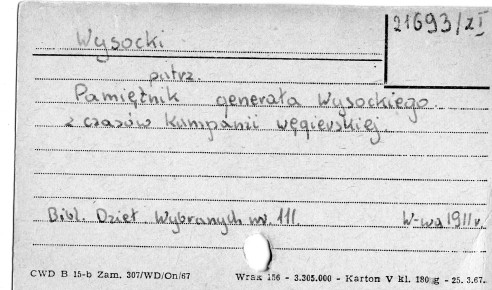 21693/zI
Wysocki
patrz.
Pamiętnik generała Wysockiego.
z czasów kampanii węgierskiej.
Bibl. Dzieł Wybranych nr. 111. W-wa 1911 r.
CWD B 15-b Zam. 307/WD/On/67 Wrax 156 - 3.305.000 - Karton V kl. 180 g - 25. 3.67.